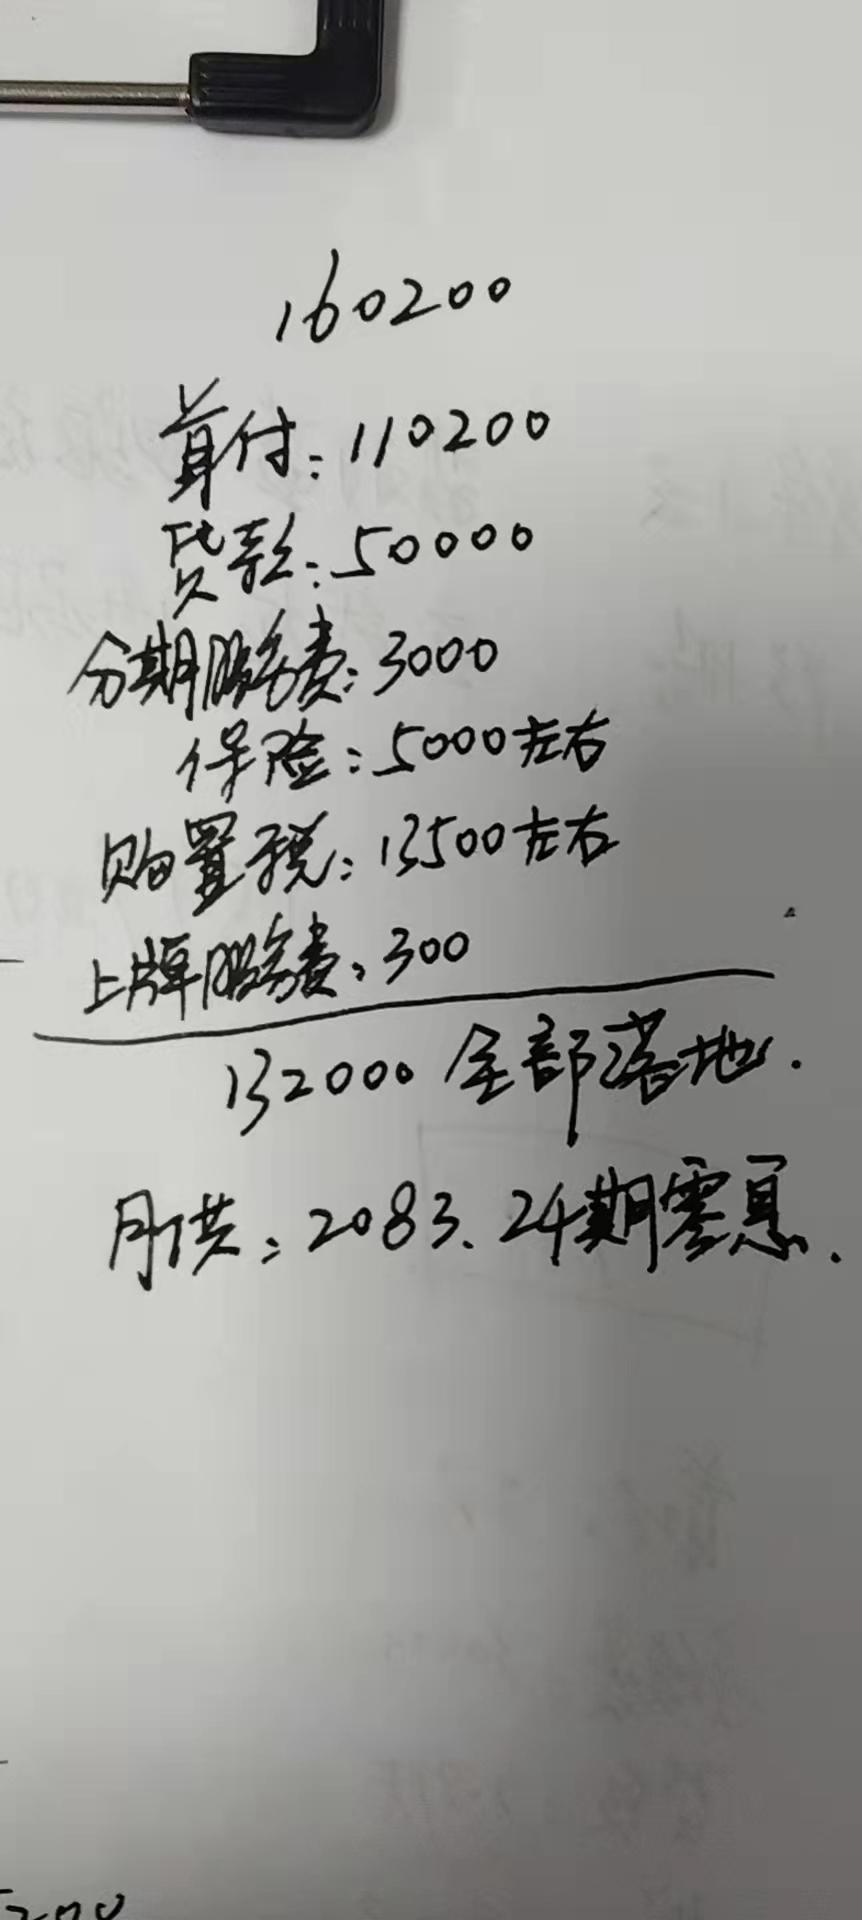 160200
首付：110200
贷款：50000
分期服务费：3000
保险：5000左右
购置税：13500左右
上牌服务费：300
132000 全部落地.
月供：2083. 24期零息.